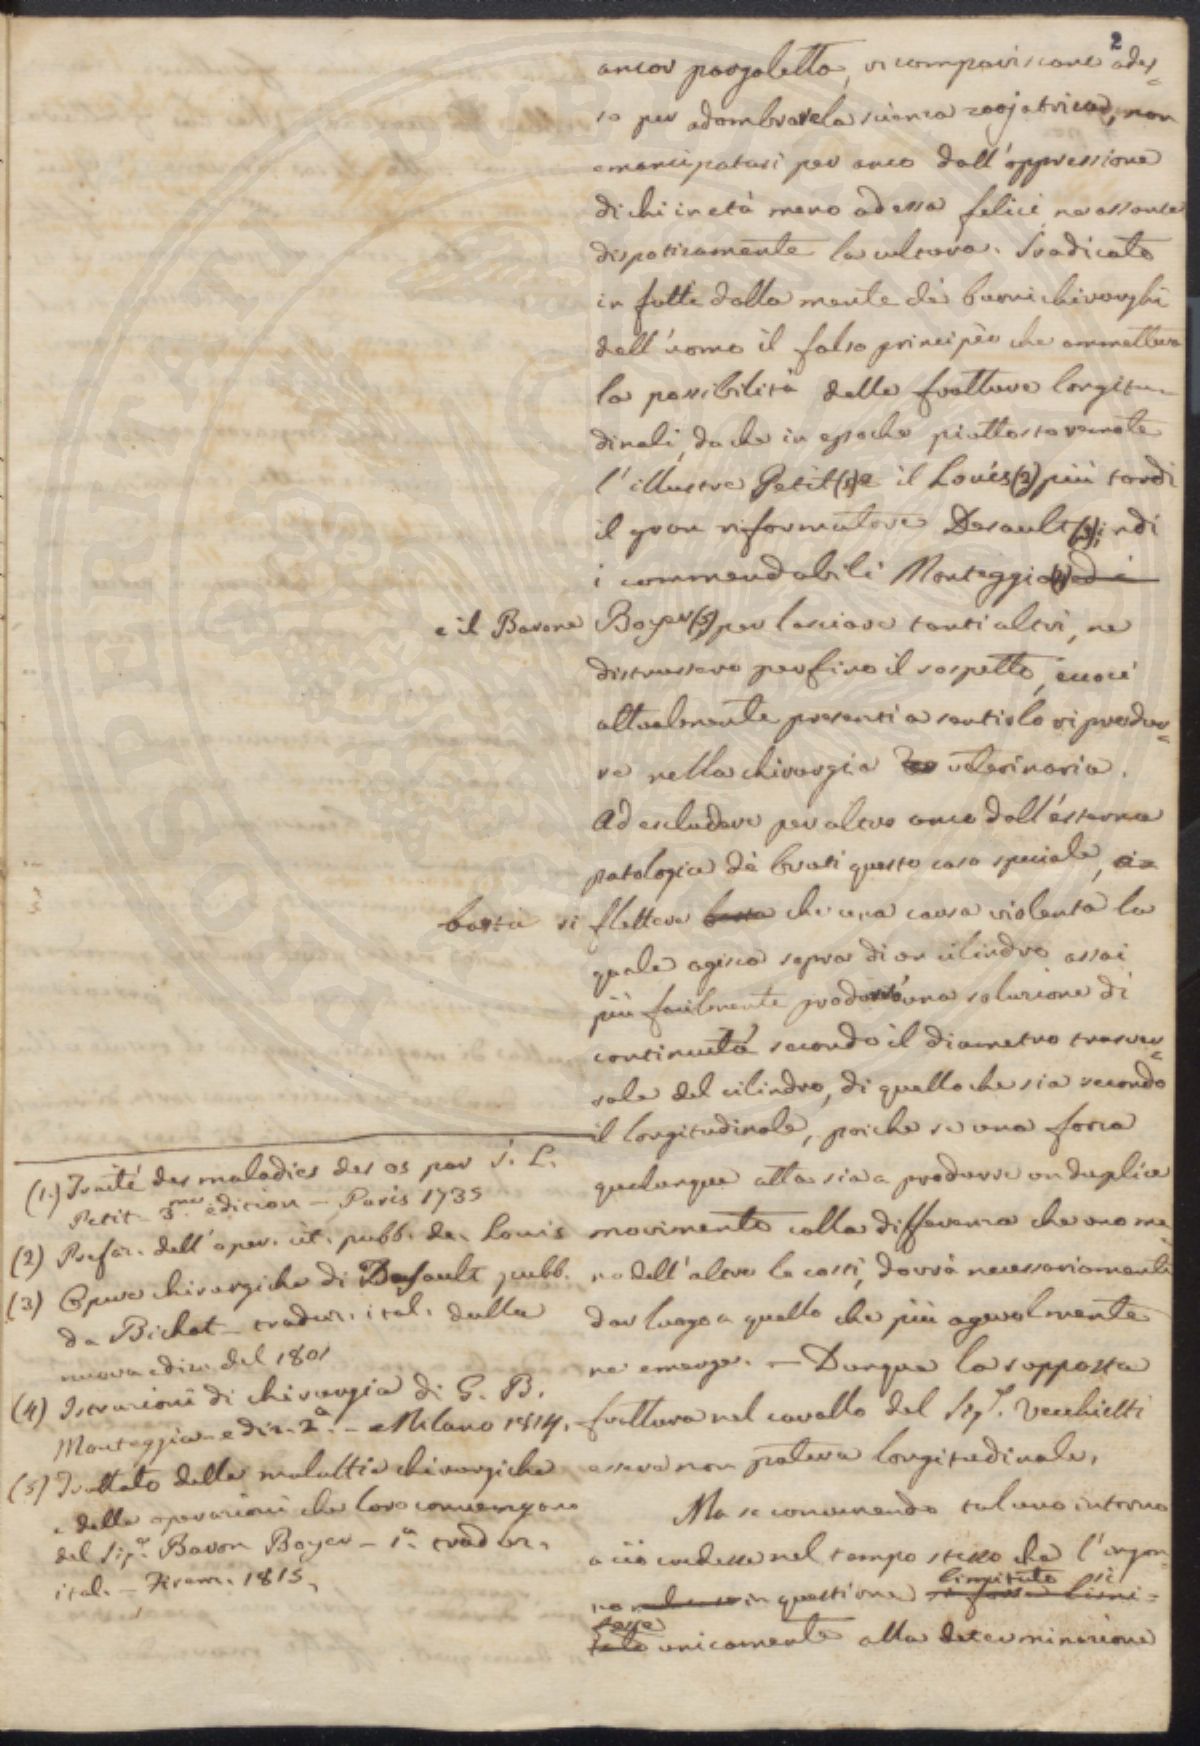 2
ancor pargoletta, ricompariscano ades-
so per adombrare la scienza zoojatrica, non
emancipatasi per anco dall'oppressione
di chi in età meno ad essa felici ne assunse
dispoticamente la cultura. Sradicato
in fatti dalla mente de' buoni chirurghi
dell'uomo il falso principio che ammetteva
la possibilità delle fratture longitu-
dinali, da che in epoche piuttosto remote
l'illustre Petit (1) e il Louis (2) più tardi
il gran riformatore Desault (3), indi
i commendabili Monteggia (4) ed i
e il Barone Boyer (5) per lasciare tanti altri, ne
distrussero perfino il sospetto, eccoci
attualmente presenti a sentirlo riprodur-
re nella chirurgia veterinaria.
Ad escludere per altro anco dall'esterna
patologia de' bruti questo caso speciale, ri-
basta ri flettere basta che una causa violenta la
quale agisca sopra di un cilindro assai
più facilmente produrrà una soluzione di
continuità secondo il diametro trasver-
sale del cilindro, di quello che sia secondo
il longitudinale, poiche se una forza
qualunque atta sia a produrre un duplice
movimento colla differenza che uno me-
no dell'altro le costi, dovrà necessariamente
dar luogo a quello che più agevolmente
ne emerge. — Dunque la supposta
frattura nel cavallo del Sigr. Vecchietti
essere non poteva longitudinale.
Ma se convenendo taluno intorno
a ciò credesse nel tempo stesso che l'ingan-
limitato si
no in questione si fosse limi-
fosse
tato unicamente alla determinazione
(1.) Traité des maladies des os par J. L.
Petit - 3.me edition — Paris 1735
(2) Prefaz. dell'oper. cit. pubb. da Louis
(3) Opere chirurgiche di Desault, pubb.
da Bichat - traduz. ital. dalla
nuova ediz. del 1801
(4) Istruzioni di chirurgia di G. B.
Monteggia - ediz. 2a. - Milano 1814.
(5) Trattato delle malattie chirurgiche
e delle operazioni che loro convengono
del Sigr. Baron Boyer - 1a traduz.
ital. - Firenz. 1815.